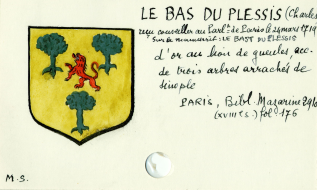 LE BAS DU PLESSIS (Charles
reçu conseiller au Parlt de Paris le 24 mars 1719
Sur le manuscrit: LE BAST DU PLESSIS
d'or au lion de gueules, acc.
de trois arbres arrachés de
sinople
PARIS, Bibl. Mazarine 2916
(XVIIIe s.) fol. 176
M.S.